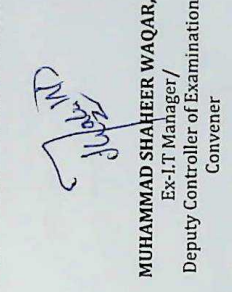 MUHAMMAD SHAHEER WAQAR,
Ex-I.T Manager/
Deputy Controller of Examination
Convener